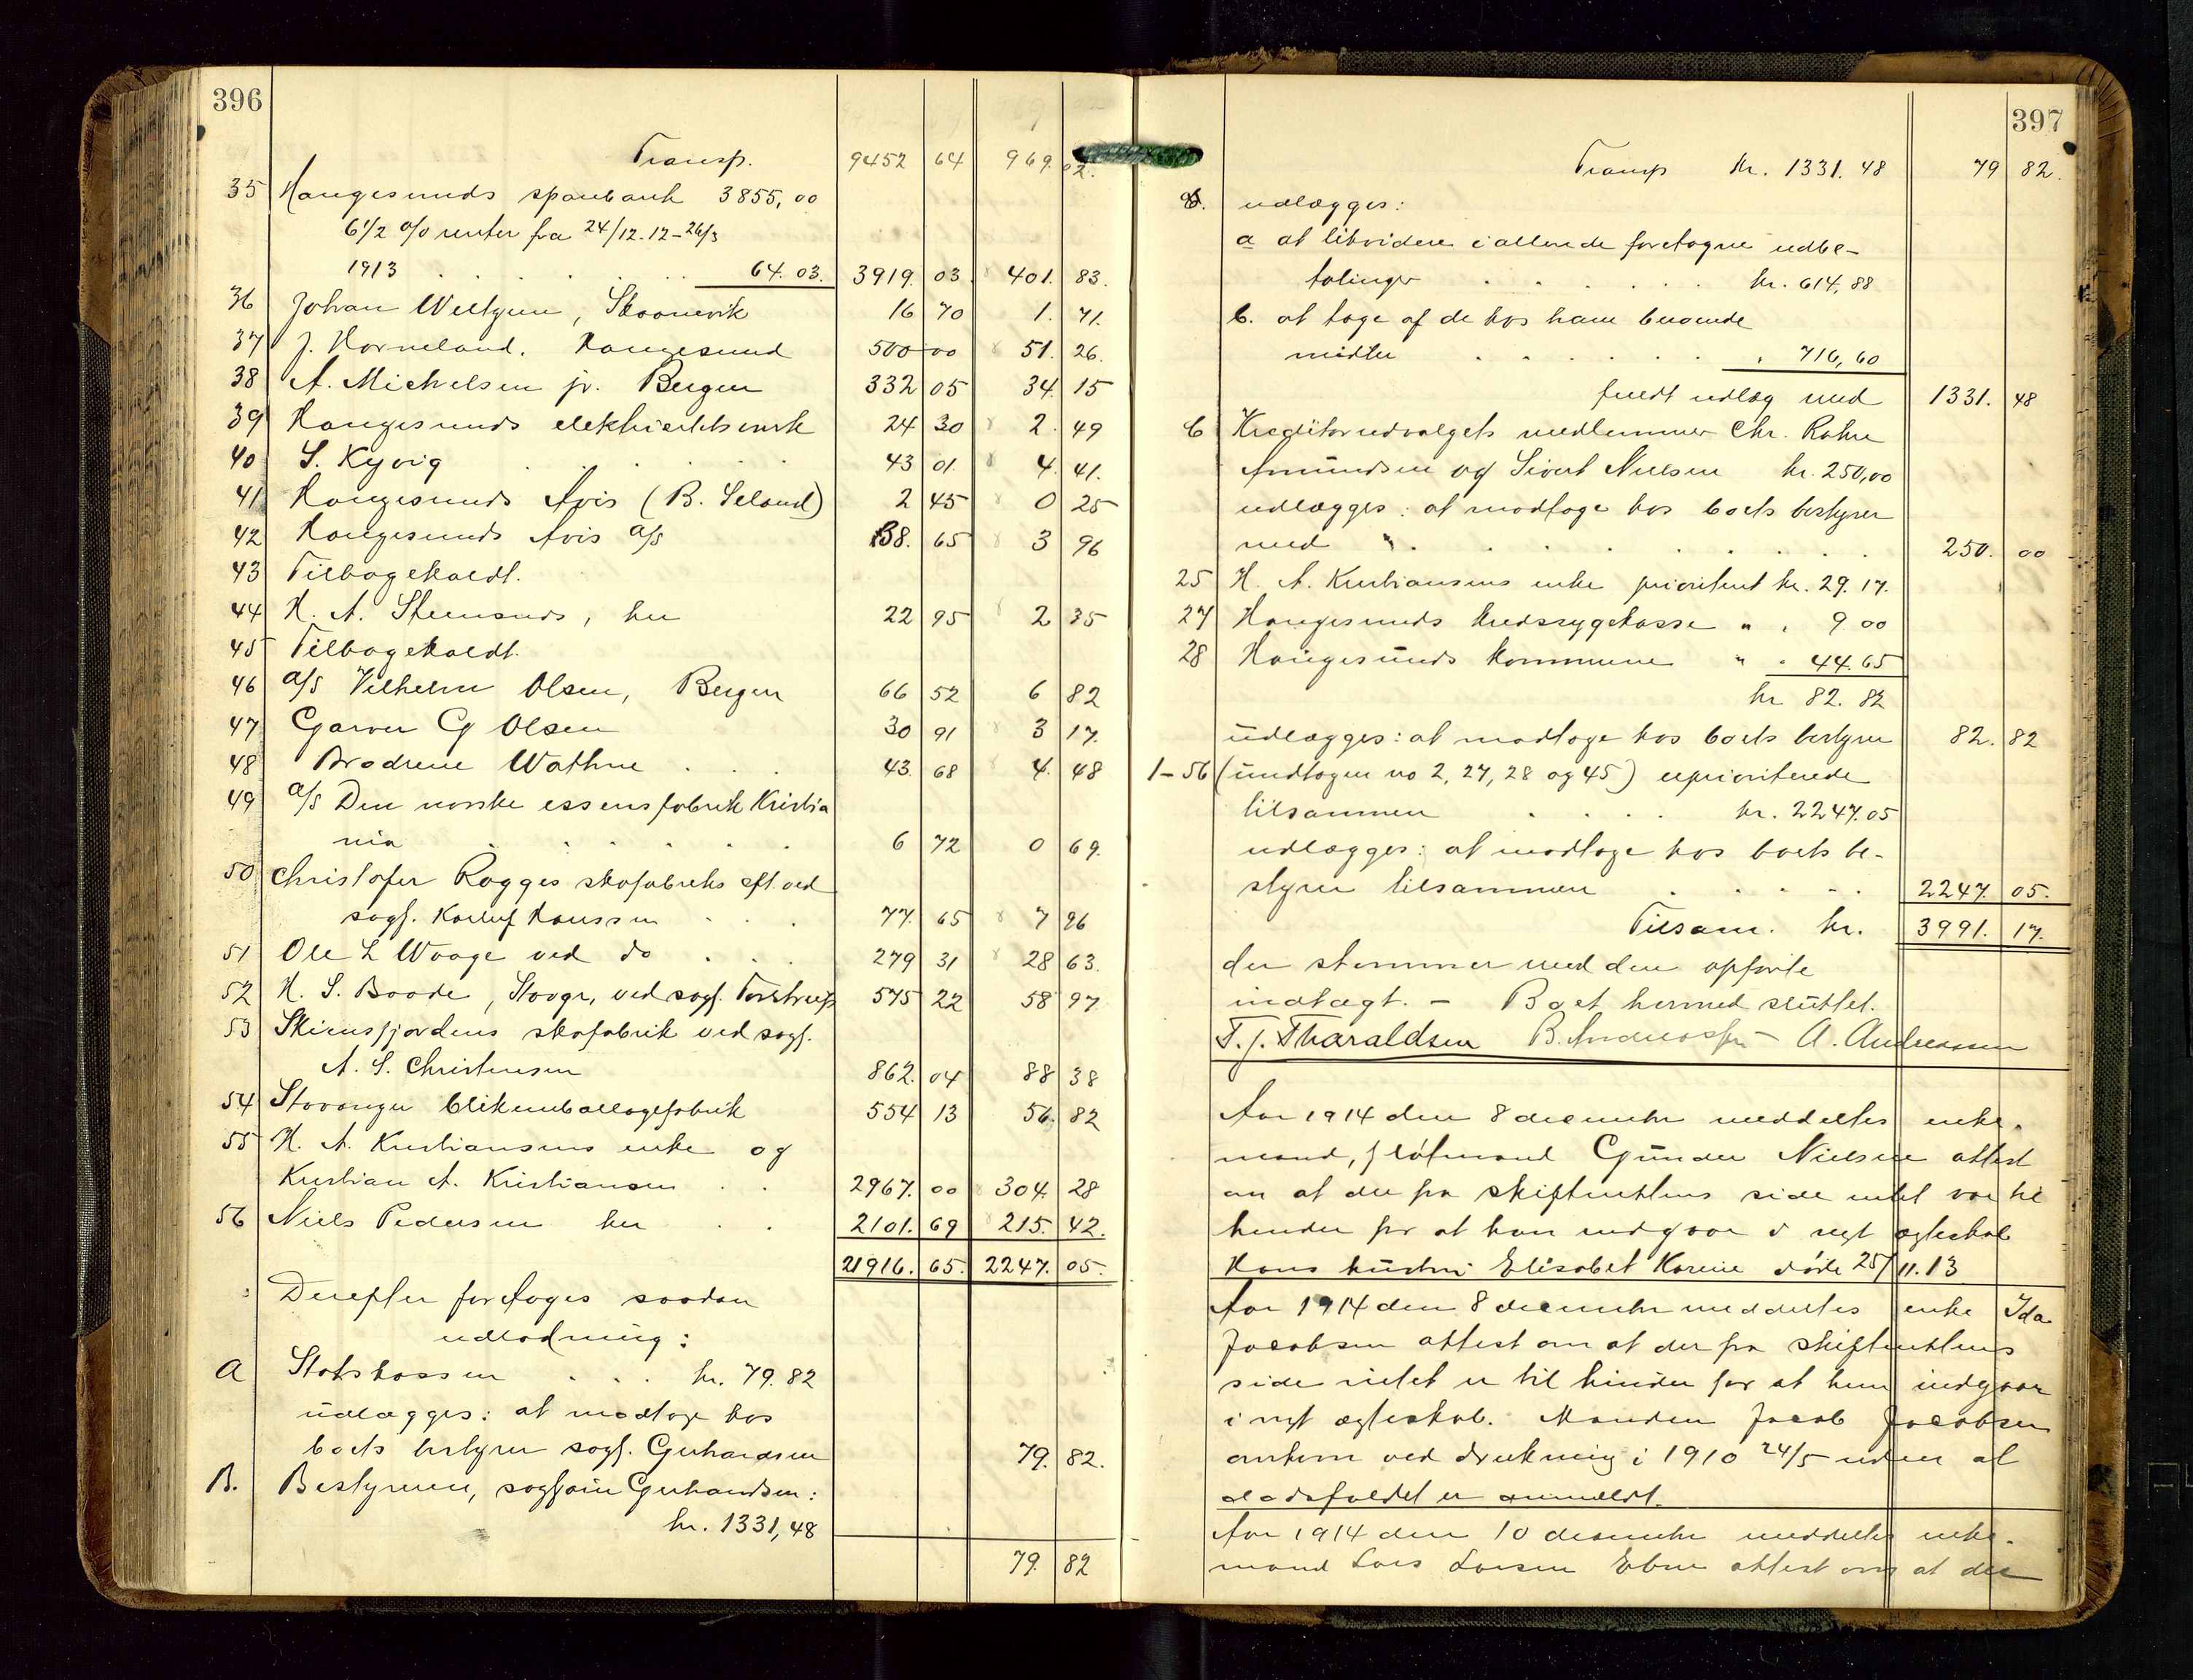 396
Transp. 9452 64 969. 02.
35 Haugesunds sparebank 3855,00
6½ % renter fra 24/12.12-26/3
1913 . . . . . 64.03. 3919. 03 401. 83.
36 Johan Weltzien, Skaanevik 16 70 1. 71.
37 J. Horneland. Haugesund 500 00 51. 26.
38 A. Michelsen jr. Bergen 332 05 34. 15
39 Haugesunds elektricitetsverk 24 30 2. 49
40 S. Kyvig . . . . . 43 01. 4. 41.
41 Haugesunds Avis (B. Seland) 2 45 0 25
42 Haugesunds Avis a/s 38. 65 3 96
43 Tilbagekaldt.
44 H. A. Steensnæs, her 22 95 2 35
45 Tilbagekaldt.
46 a/s Vilhelm Olsen, Bergen 66 52 6 82
47 Garver G Olsen 30 91 3 17.
48 Brødrene Wathne . . . 43. 68 4. 48
49 a/s Den norske essensfabrik Kristia
nia . . . . . 6 72 0 69.
50 Christofer Rogges skofabriks eft. ved
sagf. Karluf Hanssen . . . 77. 65 7 96
51 Ole L Waage ved do . . . 279 31 28 63.
52 H. S. Baade, Stavgr, ved sagf. Torstrup 575 22 58 97.
53 Skiensfjordens skofabrik ved sagf.
A. S. Christensen 862. 04 88 38
54 Stavanger blikemballagefabrik 554 13 56. 82
55 H. A. Kristiansens enke og
Kristian A. Kristiansen . . 2967. 00 304. 28
56 Niels Pedersen her . . 2101. 69 215. 42.
21916. 65. 2247. 05.
Derefter foretoges saadan
udlodning:
A Statskassen . . . kr. 79.82
udlægges: at modtage hos
boets bestyrer sagf. Gerhardsen 79. 82.
B. Bestyreren, sagfører Gerhardsen:
kr. 1331,48
79. 82
397
Transp kr. 1331.48 79 82.
udlægges:
a at likvidere i allerede foretagne udbe-
talinger . . . . . . kr. 614,88
b. at tage af de hos ham beroende
midler . . . . . . " 716,60
fuldt udlæg med 1331. 48
C Kreditorudvalgets medlemmer Chr. Rohne
Amundsen og Sivert Nielsen kr. 250,00
udlægges: at modtage hos boets bestyrer
med . . . . . . . . 250. 00
25 H. A. Kristiansens enke prioritert kr. 29.17.
27 Haugesunds kredssygekasse " " 9 00
28 Haugesunds kommune " " 44.65
kr 82.82
udlægges: at modtage hos boets bestyrer 82. 82
1-56 (undtagen no 2, 27, 28 og 45) upriorterede
tilsammen . . . . kr. 2247.05
udlægges: at modtage hos boets be-
styrer tilsammen . . . . . 2247. 05.
Tilsam. kr. 3991. 17.
der stemmer med den opførte
indtægt. - Boet hermed sluttet.
T. J. Tharaldsen B. Andreassen A. Andreassen
Aar 1914 den 8 december meddeltes enke-
mand, fløtmand Gunder Nielsen attest
om at der fra skifterettens side intet var til
hinder for at han indgaar i nyt ægteskab
Hans hustru Elisabet Karine døde 25/11.13
Aar 1914 den 8 december meddeltes enke Ida
Jacobsen attest om at der fra skifterettens
side intet er til hinder for at hun indgaar
i nyt ægteskab. Manden Jacob Jacobsen
omkom ved drukning i 1910 24/5 uden at
dødsfaldet er anmeldt.
Aar 1914 den 10 december meddeltes enke-
mand Lars Larsen Ebne attest om at der